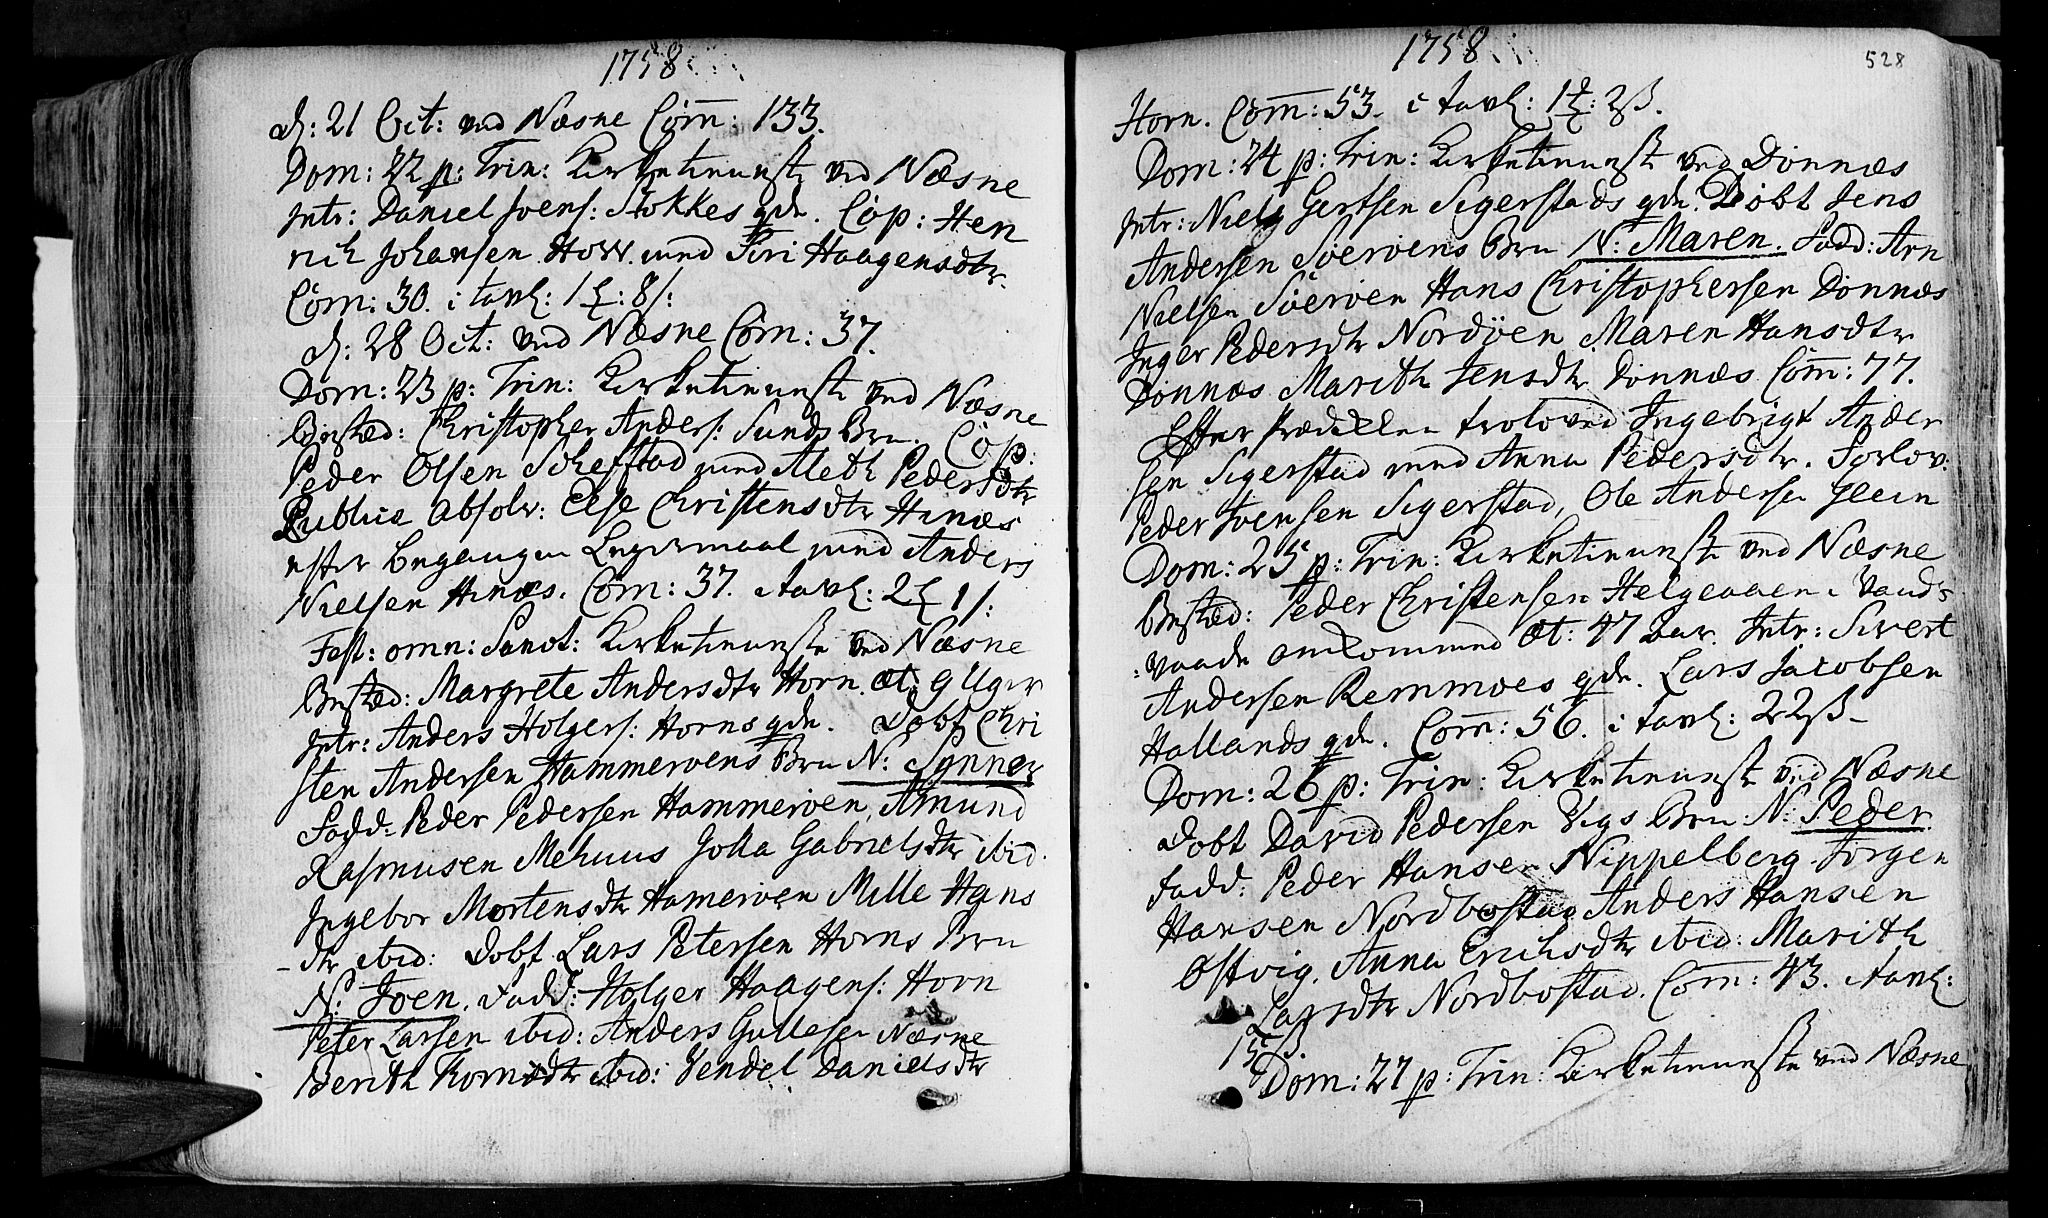 1758
d: 21 Oct: ved Næsne Com̄: 133.
Dom: 22 p: Trin: Kirketienniste ved Næsne
Intr: Daniel Joens: Stokkes qde. Cop: Hen
rich Johansen Hov. med Siri Haagensdtr.
Com: 30. i tavl: 1 : 8 /:
d: 28 Oct: ved Næsne Com: 37.
Dom: 23 p: Trin: Kirketienniste ved Næsne
Christopher Anders: Sunds Brn. Cop:
Peder Olsen Scheftad med Aleth Pedersdtr
Publice Absolv: Else Christensdtr Hinæs
efter begangen Leyermaal med Anders
Nielsen Hinæs. Com: 37. i tavl: 2 1 /:
Fest: omn: Sanct: Kirketienniste ved Næsne
Margrete Andersdtr Horn. æt: 9 Uger
Intr: Anders Holgers: Horns qde. Døbt Chri
sten Andersen Hammerøens Brn N: Synner
Fadd: Peder Pedersen Hammerøen, Amund
Rasmusen Mehuus Jolla Gabrielsdtr ibid.
Ingebor Mortensdtr Hamerøen Mille Hans
dtr ibid: Døbt Lars Petersen Horns Brn
N: Joen. Fadd: Holger Haagens: Horn
Peter Larsen ibid: Anders Gullesen Næsne
Berith Tomesdtr ibid: Vendel Danielsdtr
1758
528
Horn. Com̄: 53. i tavl: 1 : 2 ß.
Dom: 24 p: Trin: Kirketienniste ved Dønnæs
Intr: Niels Gertsen Sigerstads qde. Døbt Jens
Andersen Søerøens Brn N: Maren. Fadd: Arn
Nielsen Søerøen Hans Christophersen Dønnæs
Inger Pedersdtr Nordøen Maren Hansdtr
Dønnæs Marith Jensdtr Dønnæs Com̄: 77.
Efter Prædiken troloved Ingebrigt Ander
sen Sigerstad med Anna Pedersdtr. Forlov:
Peder Joensen Sigerstad, Ole Andersen Glein
Dom: 25 p: Trin: Kirketienniste ved Næsne
Peder Christensen Helgeaaen i Vands
vaade omkommed æt: 47 Aar. Intr: Sivert
Andersen Remmoes qde. Lars Jacobsen
Hallands qde. Com̄: 56. i tavl: 22 ß
Dom: 26 p: Trin: Kirketienniste ved Næsne
Døbt David Pedersen Vigs Brn N: Peder
Fadd: Peder Hansen Nippelberg Jørgen
Hansen Nordbostad Anders Hansen
Ostvig. Anna Erichsdtr ibid: Marith
Larsdtr Nordbostad. Com: 43. i tavl:
15 ß
Dom: 27 p: Trin: Kirketienniste ved Næsne